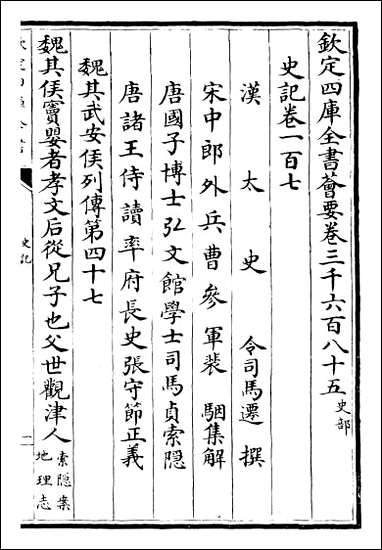 欽定四庫全書薈要卷三千六百八十五 史部
史記卷一百七
漢 太 史 令司馬遷 撰
宋中郎外兵曹參軍裴 駰集解
唐國子博士弘文館學士司馬貞索隠
唐諸王侍讀率府長史張守節正義
魏其武安侯列傳第四十七
魏其侯竇嬰者孝文后從兄子也父世觀津人 索隠案
地理志
史記
一